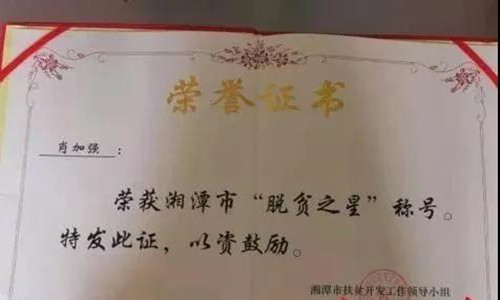 荣誉证书
肖加强：
荣获湘潭市“脱贫之星”称号。
特发此证，以资鼓励。
湘潭市扶贫开发工作领导小组